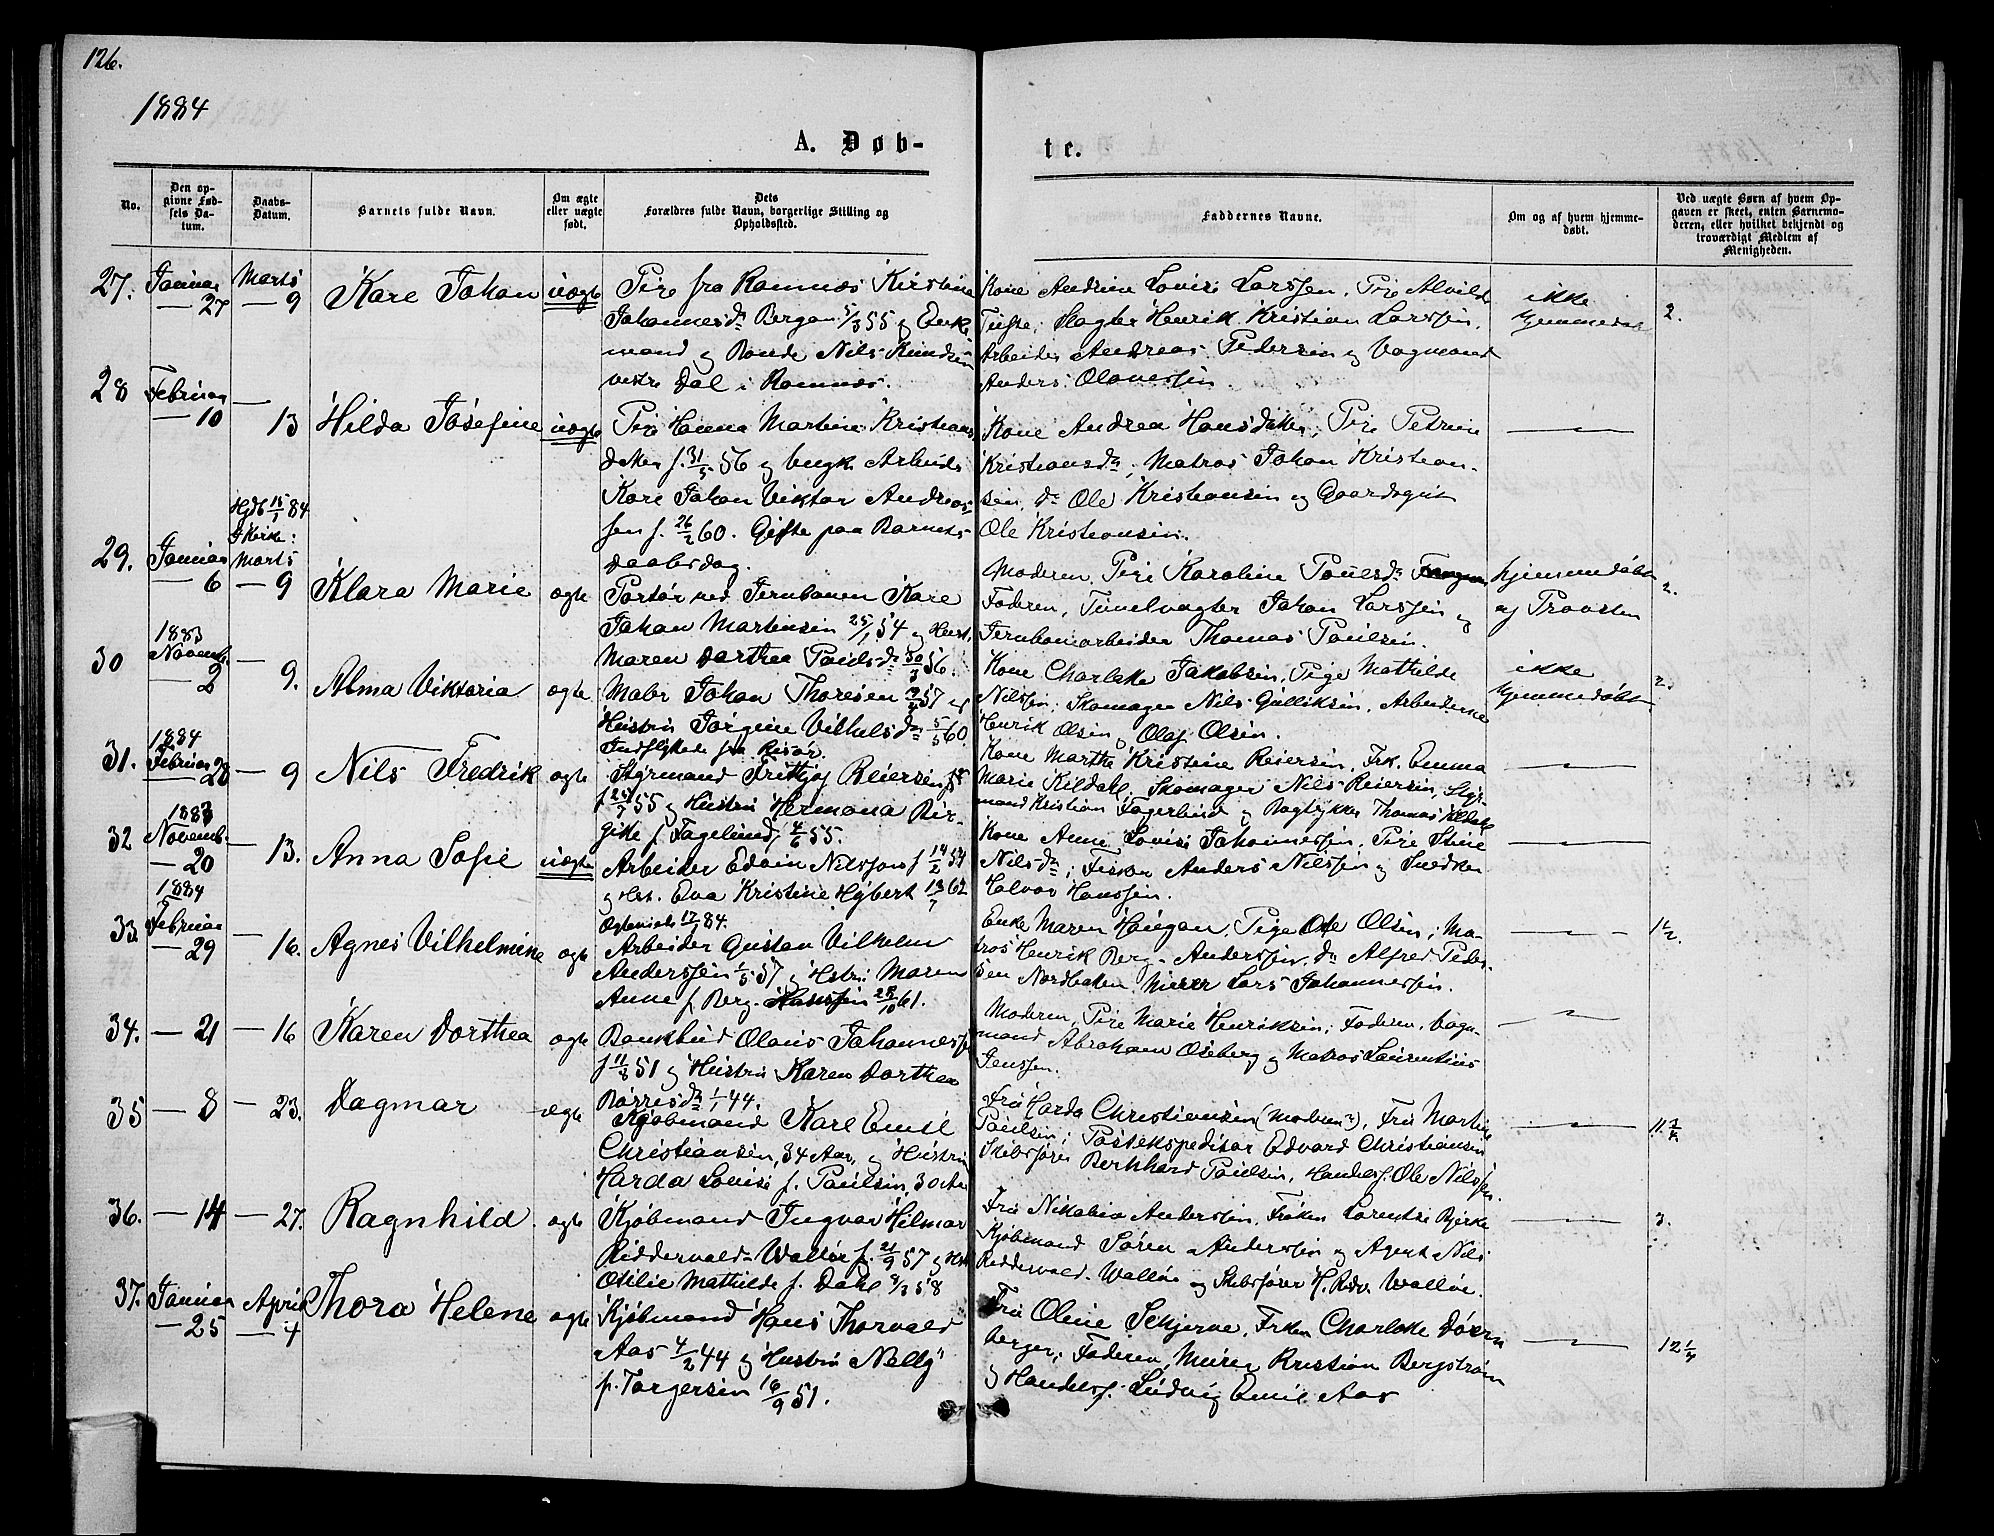 126.
1884
A. Døb-
te.
No.
Den op-
givne Fød-
sels Da-
tum.
Daabs-
Datum.
Barnets fulde Navn.
Om ægte
eller uægte
født.
Dets
Forældres fulde Navn, borgerlige Stilling og
Opholdssted.
Faddernes Navne.
Om og af hvem hjemme-
døbt.
Ved uægte Børn af hvem Op-
gaven er skeet, enten Barnemo-
deren, eller hvilket bekjendt og
troværdigt Medlem af
Menigheden.
27.
Januar
— 27
Marts
— 9
Karl Johan
uægte
Pige fra Ramnæs Kirstine
Johannesdr Bergan 5/3 55 og Enke
mand og Bonde Nils Knudsen
vestre Dal i Ramnæs.
Kone Andrine Lovise Larssen, Pige Alvilde
Tufte; Slagter Henrik Kristian Larssen,
Arbeider Andreas Pedersen og Vognmand
Anders Olavessen.
ikke
hjemmedøbt
2.
28
Februar
— 10
— 13
Hilda Josefine
uægte
Pige Hanna Martine Kristians
datter f. 31/5 56 og ungk. Arbeids
Karl Johan Viktor Andreas-
sen f. 26/2 60. Gifte paa Barnets
Daabsdag.
Kone Andrea Hansdatter, Pige Petrine
Kristiansdr; Matros Johan Kristian-
sen, do Ole Kristiansen og Gaardsgut
Ole Kristiansen.
29.
Januar
— 6
Hjdb 15/1 84
I Kirke:
Marts
— 9
Klara Marie
ægte
Portør ved Jernbanen Karl
Johan Martinsen 25/1 54 og Hust.
Maren Dorthea Poulsdr 30/3 56.
Moderen, Pige Karoline Poulsdr
Faderen, Tunelvagter Johan Larssen og
Jernbanearbeider Thomas Poulsen.
hjemmedøbt
af Provsten
2.
30
1883
Novemb.
— 2
— 9.
Alma Viktoria
ægte
Maler Johan Thoresen 57 og
Hustru Jørgine Vilhelmsdr 5/5 60.
Indflyttede fra Risør.
Kone Charlotte Jakobsen, Pige Mathilde
Nilssen; Skomager Nils Gulliksen, Arbeiderne
Henrik Olsen og Olaf Olsen.
ikke
hjemmedøbt
2.
31.
1884
Februar 28
— 9
Nils Fredrik
ægte
Styrmand Frithjof Reiersen
55 og Hustru Hermana Bir-
gitte f. Fagelund, 4/6 55.
Kone Marthe Kristine Reiersen, Frk. Emma
Marie Kildahl, Skomager Nils Reiersen, Styr-
mand Kristian Fagerlund og Bogtrykker Thomas Kildahl
32
1883
Novemb.
— 20
— 13.
Anna Sofie
uægte
Arbeider Edvin Nilsson f 14/2 54
og Hst. Eva Kristine Hybert 13/7 62
Kone Anne Lovise Johannessen, Pige Stine
Nilsdr; Fisker Anders Nilssen og Snedker
Halvor Hanssen.
33.
1884
Februar
— 29
— 16.
Agnes Vilhelmine
ægte
Arbeider Gustav Vilhelm
Anderssen 1/5 57 og Hstru Maren
Anne f. Berg. 28/10 61.
Enke Maren Haugan, Pige Olsen; Ma-
tros Henrik Berg-Anderssen, do Alfred Peder-
sen Nordbaken, Murer Lars Johannessen.
1 1/2.
34.
— 21
— 16
Karen Dorthea
ægte
Bankbud Olaus Johannessen
f 11/8 51 og Hustru Karen Dorthea
Børresdr 1/1 44.
Moderen, Pige Marie Henriksen; Faderen, Vogn-
mand Abraham Oseberg og Matros Laurentius
Jenssen.
35
— 8
— 23.
Dagmar
ægte
Kjøbmand Karl Emil
Christiansen, 34 Aar, og Hustru
Harda Louise f. Paulsen, 30 Aar
Fru Harda Christiansen (Moderen), Fru Martine
Paulsen; Postekspeditør Edvard Christiansen
Skibsfører Bernhard Paulsen, Handelsf. Ole Nilssen.
36.
— 14
— 27.
Ragnhild
ægte
Kjøbmand Ingvar Hilmar
Riddervold-Walløe f. 21/9 57 og Hst
Otilie Mathilde f. Dahl 9/3 58
Fru Nikolina Anderssen, Frøken Lorentse Bjerke
Kjøbmand Søren Anderssen og Agent Nils
Riddervold-Walløe og Skibsfører H. Ridv. Walløe.
3.
37.
Januar
— 25
April
— 4
Thora Helene
ægte
Kjøbmand Hans Thorvald
Aas 4/2 44 og Hustru Nelly
f. Torgersen 16/9 51.
Fru Oline Schjerve, Frøken Charlotte Dørn
berger; Faderen, Murer Kristian Bergstrøm
og Handelsf. Ludvig Emil Aas
12 1/4